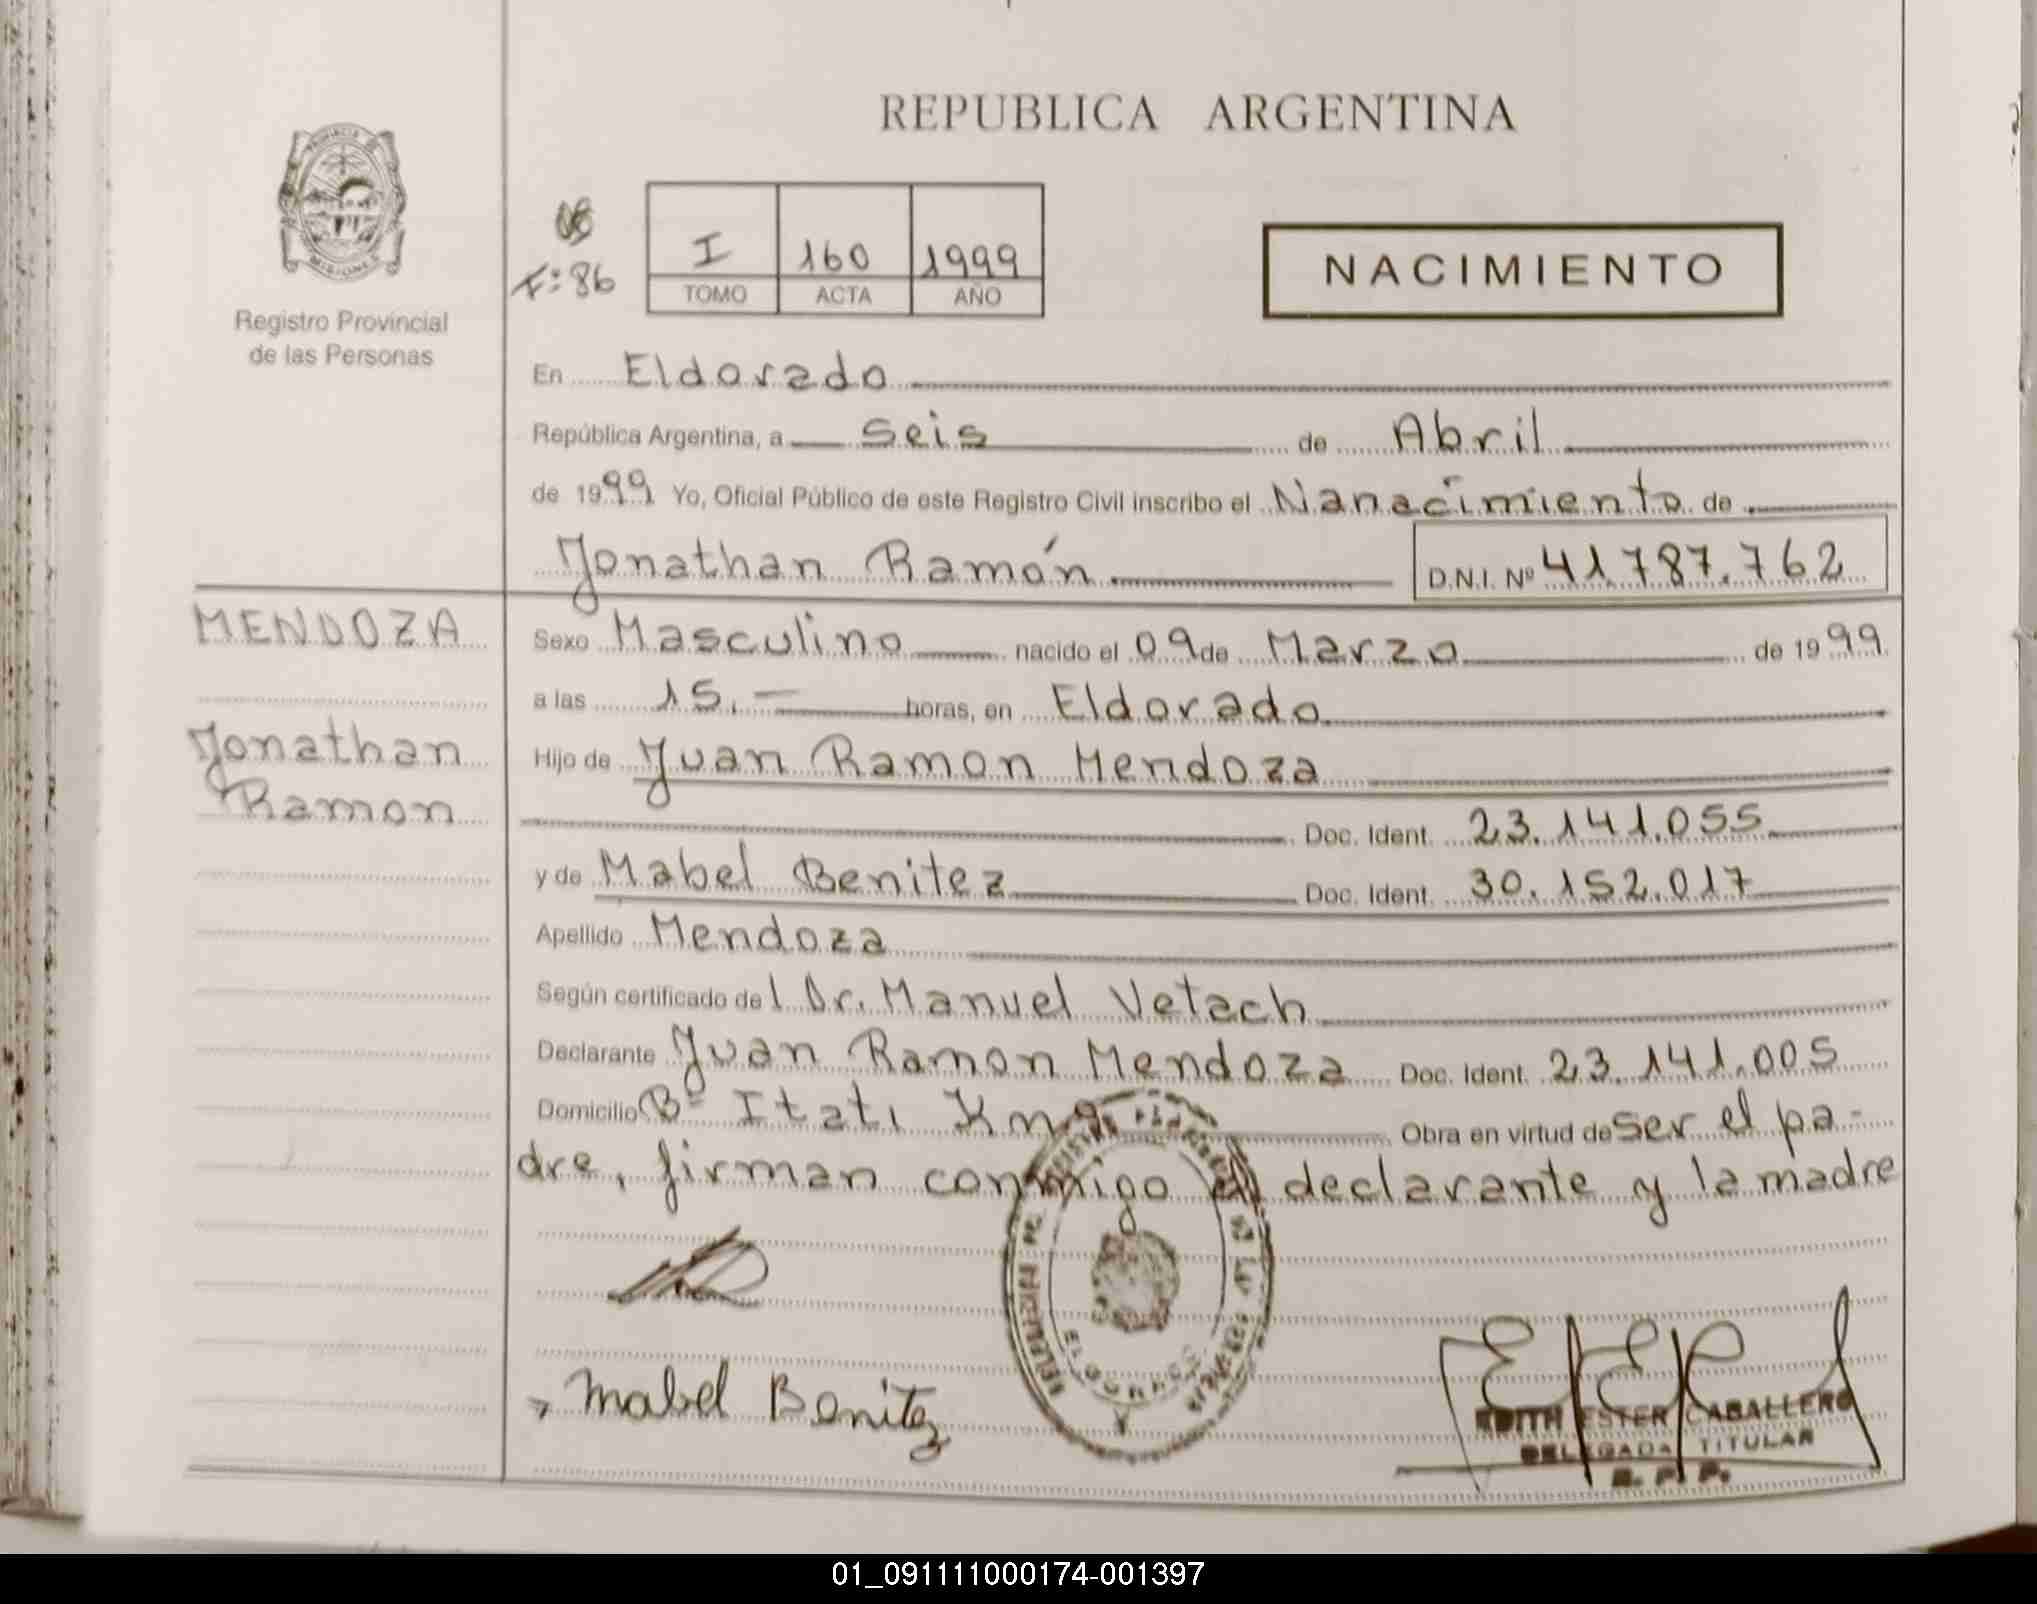 REPUBLICA ARGENTINA
PROVINCIA DE
MISIONES
Registro Provincial
de las Personas
F: 86
I 160 1999
TOMO ACTA AÑO
NACIMIENTO
En Eldorado
República Argentina, a seis de Abril
de 1999 Yo, Oficial Público de este Registro Civil inscribo el Nanacimiento de
Jonathan Ramón D.N.I. Nº 41.787.762
MENDOZA
Jonathan
Ramon
Sexo Masculino nacido el 09 de Marzo de 1999
a las 15.- horas, en Eldorado
Hijo de Juan Ramon Mendoza
Doc. Ident. 23.141.055
y de Mabel Benitez Doc. Ident. 30.152.017
Apellido Mendoza
Según certificado del Dr. Manuel Vetach
Declarante Juan Ramon Mendoza Doc. Ident. 23.141.005
Domicilio Bº Itati Obra en virtud de ser el pa-
dre, firman conmigo el declarante y la madre
Mabel Benitez
EDITH ESTER CABALLERO
DELEGADA TITULAR
R. P. P.
01_091111000174-001397